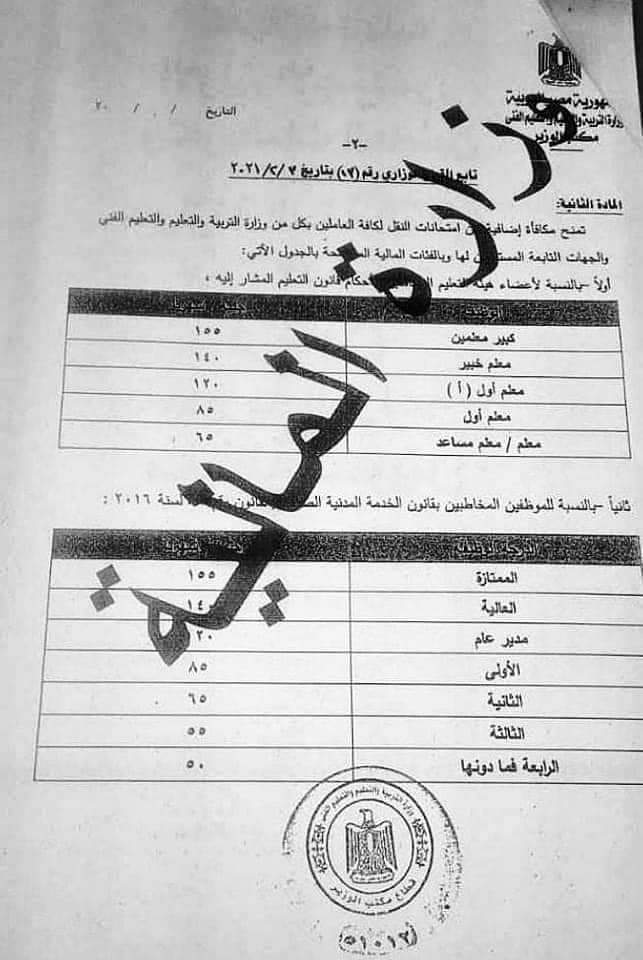 جمهورية مصر العربية
وزارة التربية والتعليم والتعليم الفنى
مكتب الوزير
التاريخ / / ٢٠
-٢-
تابع القرار الوزاري رقم (١٧) بتاريخ ٢٠٢١/٢/٧
المادة الثانية:
تمنح مكافأة إضافية عن امتحانات النقل لكافة العاملين بكل من وزارة التربية والتعليم والتعليم الفني
والجهات التابعة لها وبالفئات المالية بالجدول الآتي:
أولاً -بالنسبة لأعضاء هيئة التعليم أحكام قانون التعليم المشار إليه ،
الوظيفة
كبير معلمين ١٥٥
معلم خبير ١٤٠
معلم أول ( أ ) ١٢٠
معلم أول ٨٥
معلم / معلم مساعد ٦٥
ثانياً -بالنسبة للموظفين المخاطبين بقانون الخدمة المدنية لسنة ٢٠١٦ :
الدرجة الوظيفية
الممتازة ١٥٥
العالية
مدير عام
الأولى ٨٥
الثانية ٦٥
الثالثة ٥٥
الرابعة فما دونها ٥٠
وزارة المالية
وزارة التربية والتعليم والتعليم الفنى
قطاع مكتب الوزير